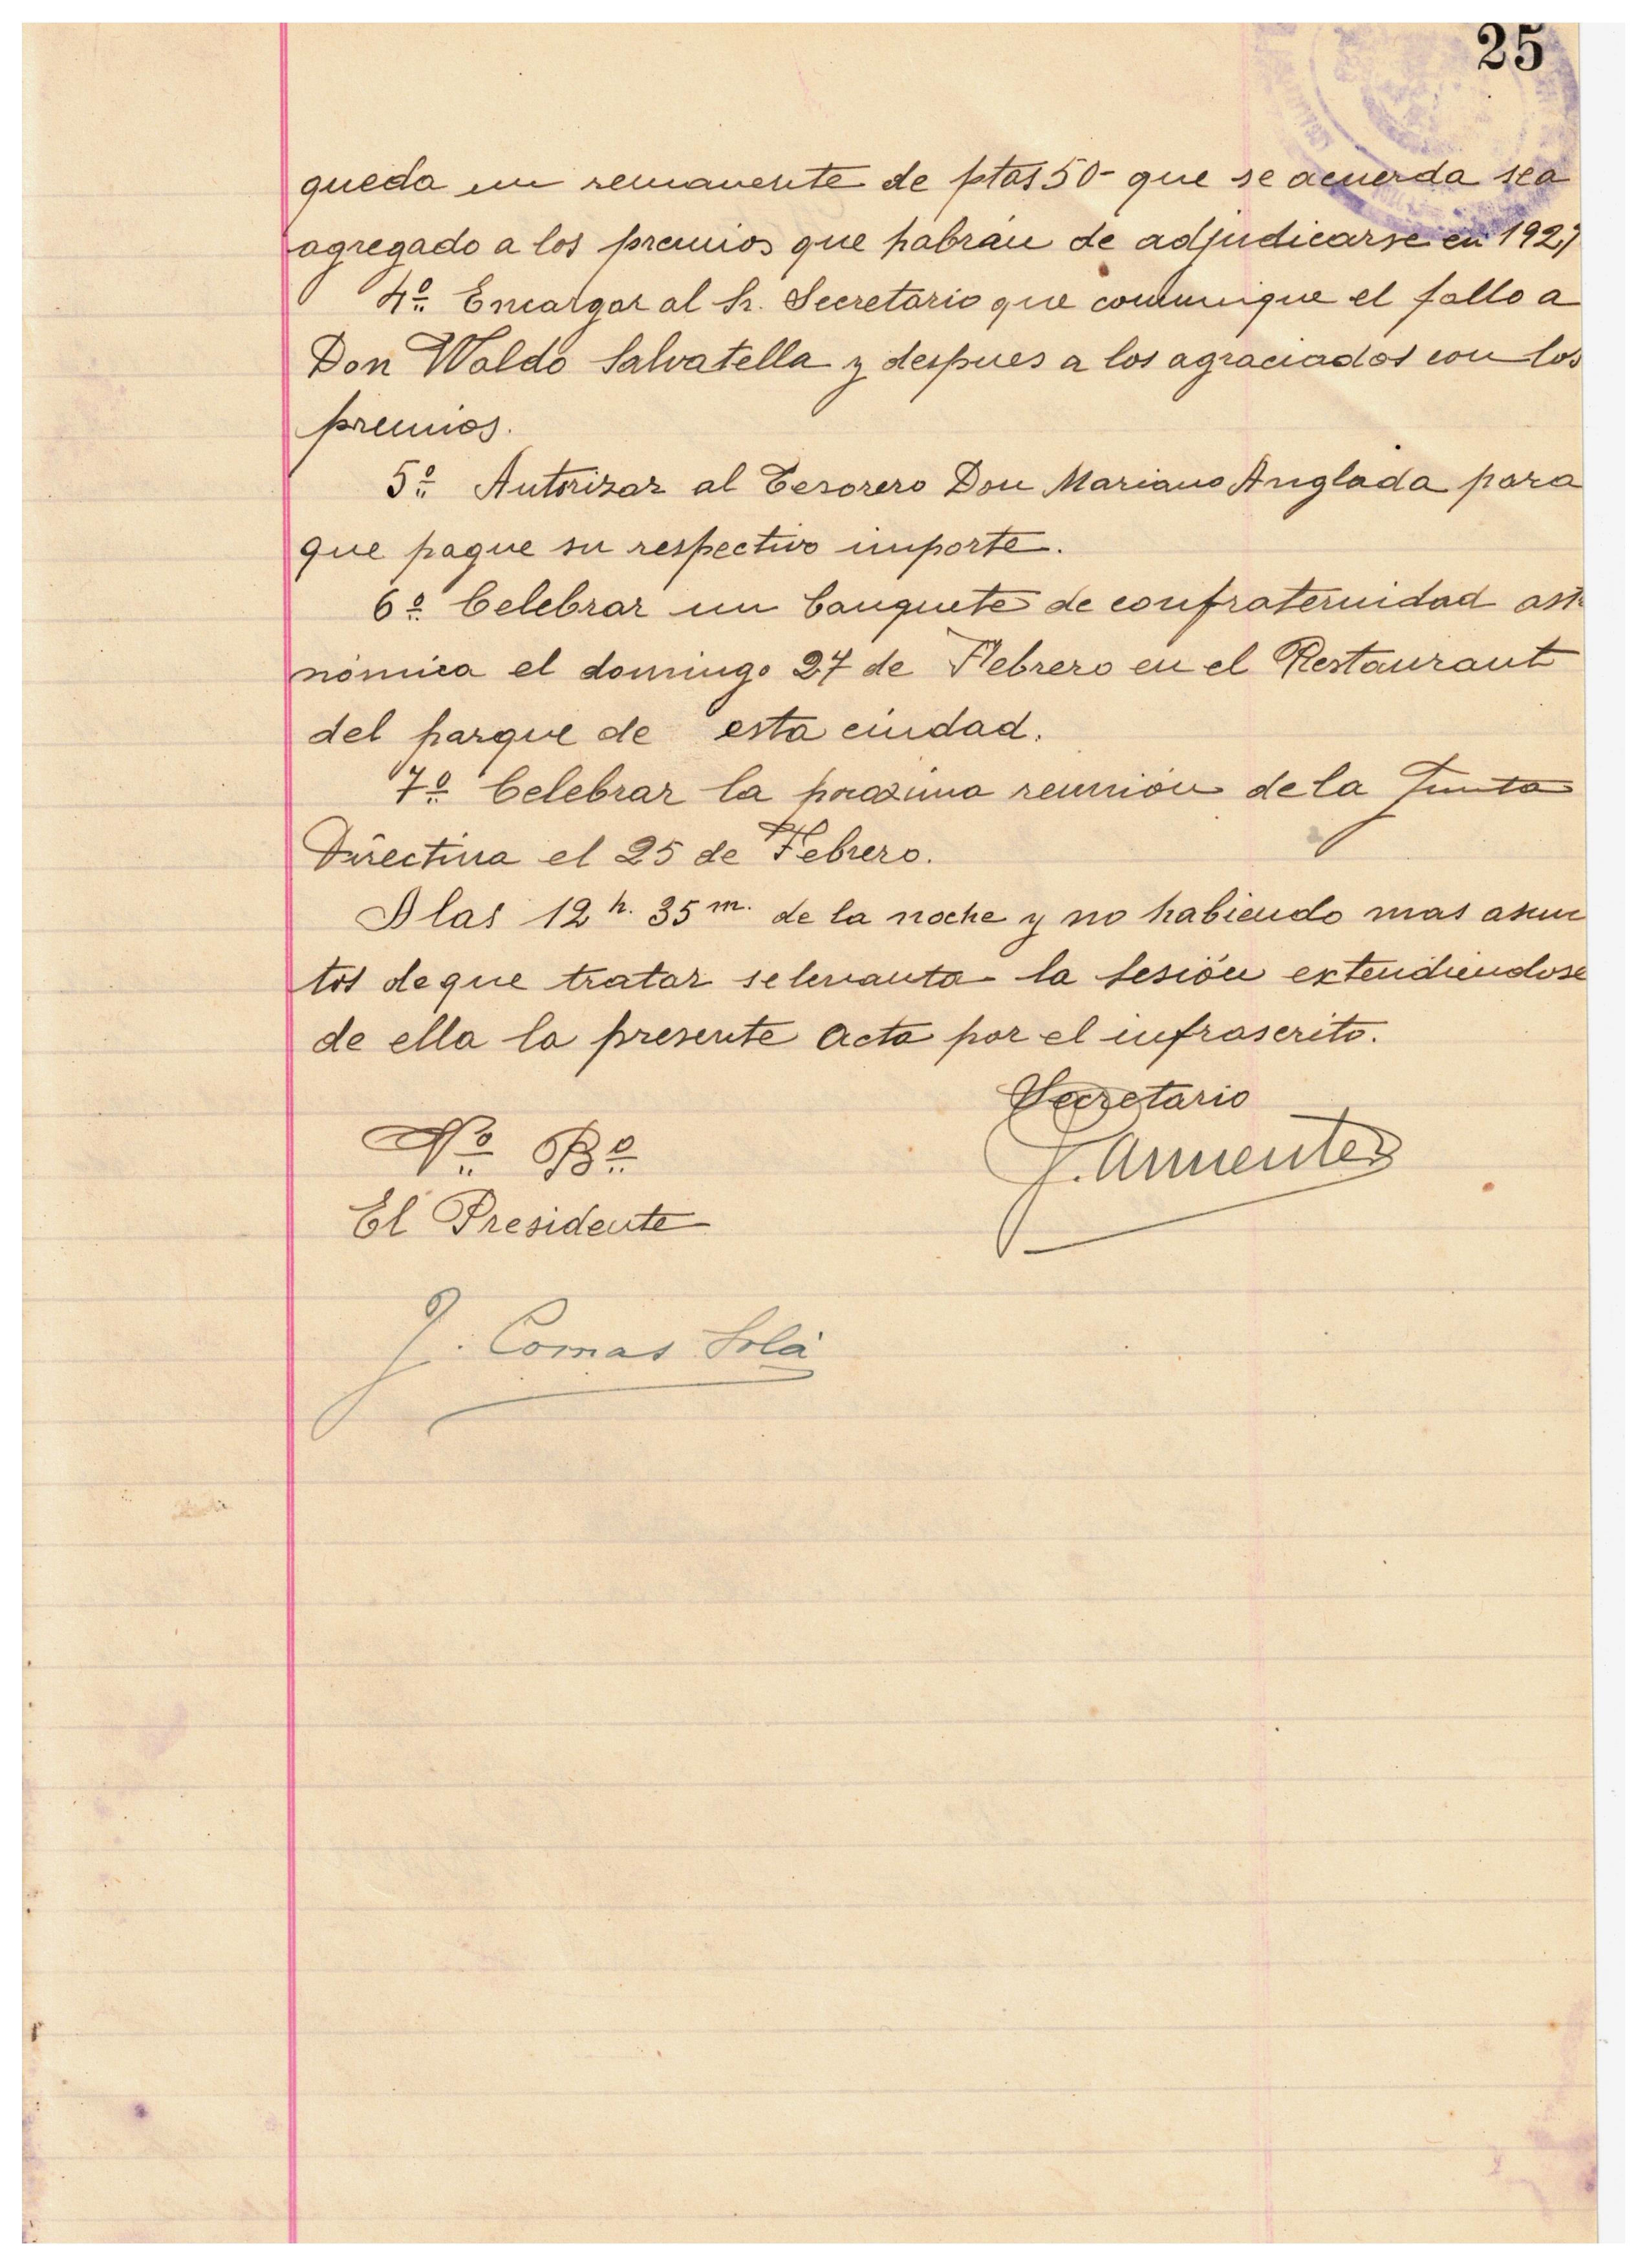 25
queda un remanente de ptas 50- que se acuerda sea
agregado a los premios que habrán de adjudicarse en 1927
4º Encargar al Sr. Secretario que comunique el fallo a
Don Waldo Salvatella y despues a los agraciados con los
premios.
5º Autorizar al Tesorero Don Mariano Anglada para
que pague su respectivo importe.
6º Celebrar un banquete de confraternidad astr
nómica el domingo 27 de Febrero en el Restaurant
del parque de esta ciudad.
7º Celebrar la proxima reunión de la Junta
Directiva el 25 de Febrero.
A las 12 h. 35 m. de la noche y no habiendo mas asun
tos de que tratar se levanta la sesión extendiendose
de ella la presente acta por el infrascrito.
Secretario
Vº Bº
J. Armenter
El Presidente
J. Comas Solá